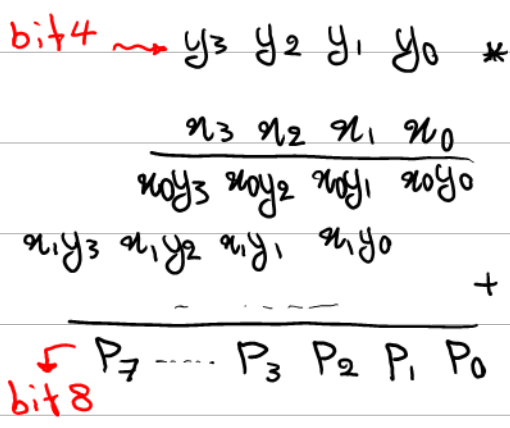 bit4 → y3 y2 y1 y0 *
x3 x2 x1 x0
x0y3 x0y2 x0y1 x0y0
x1y3 x1y2 x1y1 x1y0
- - - - - +
P7 ..... P3 P2 P1 P0
bit8